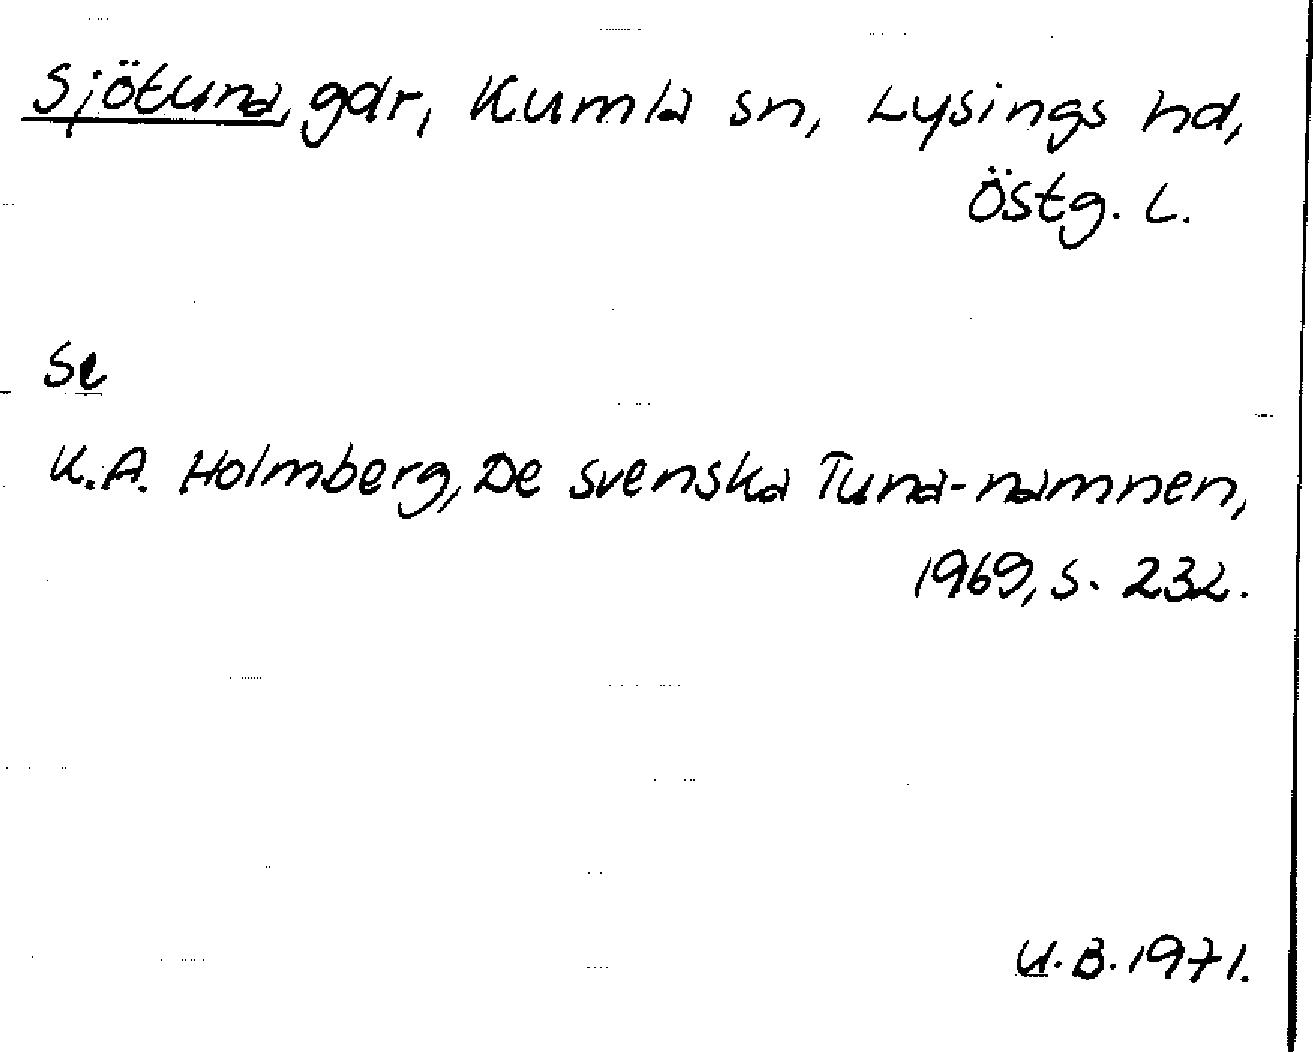 Sjötuna, gdr, Kumla sn, Lysings hd,
Östg. L.
Se
K.A. Holmberg, De svenska Tuna-namnen,
1969, s. 232.
U.B. 1971.